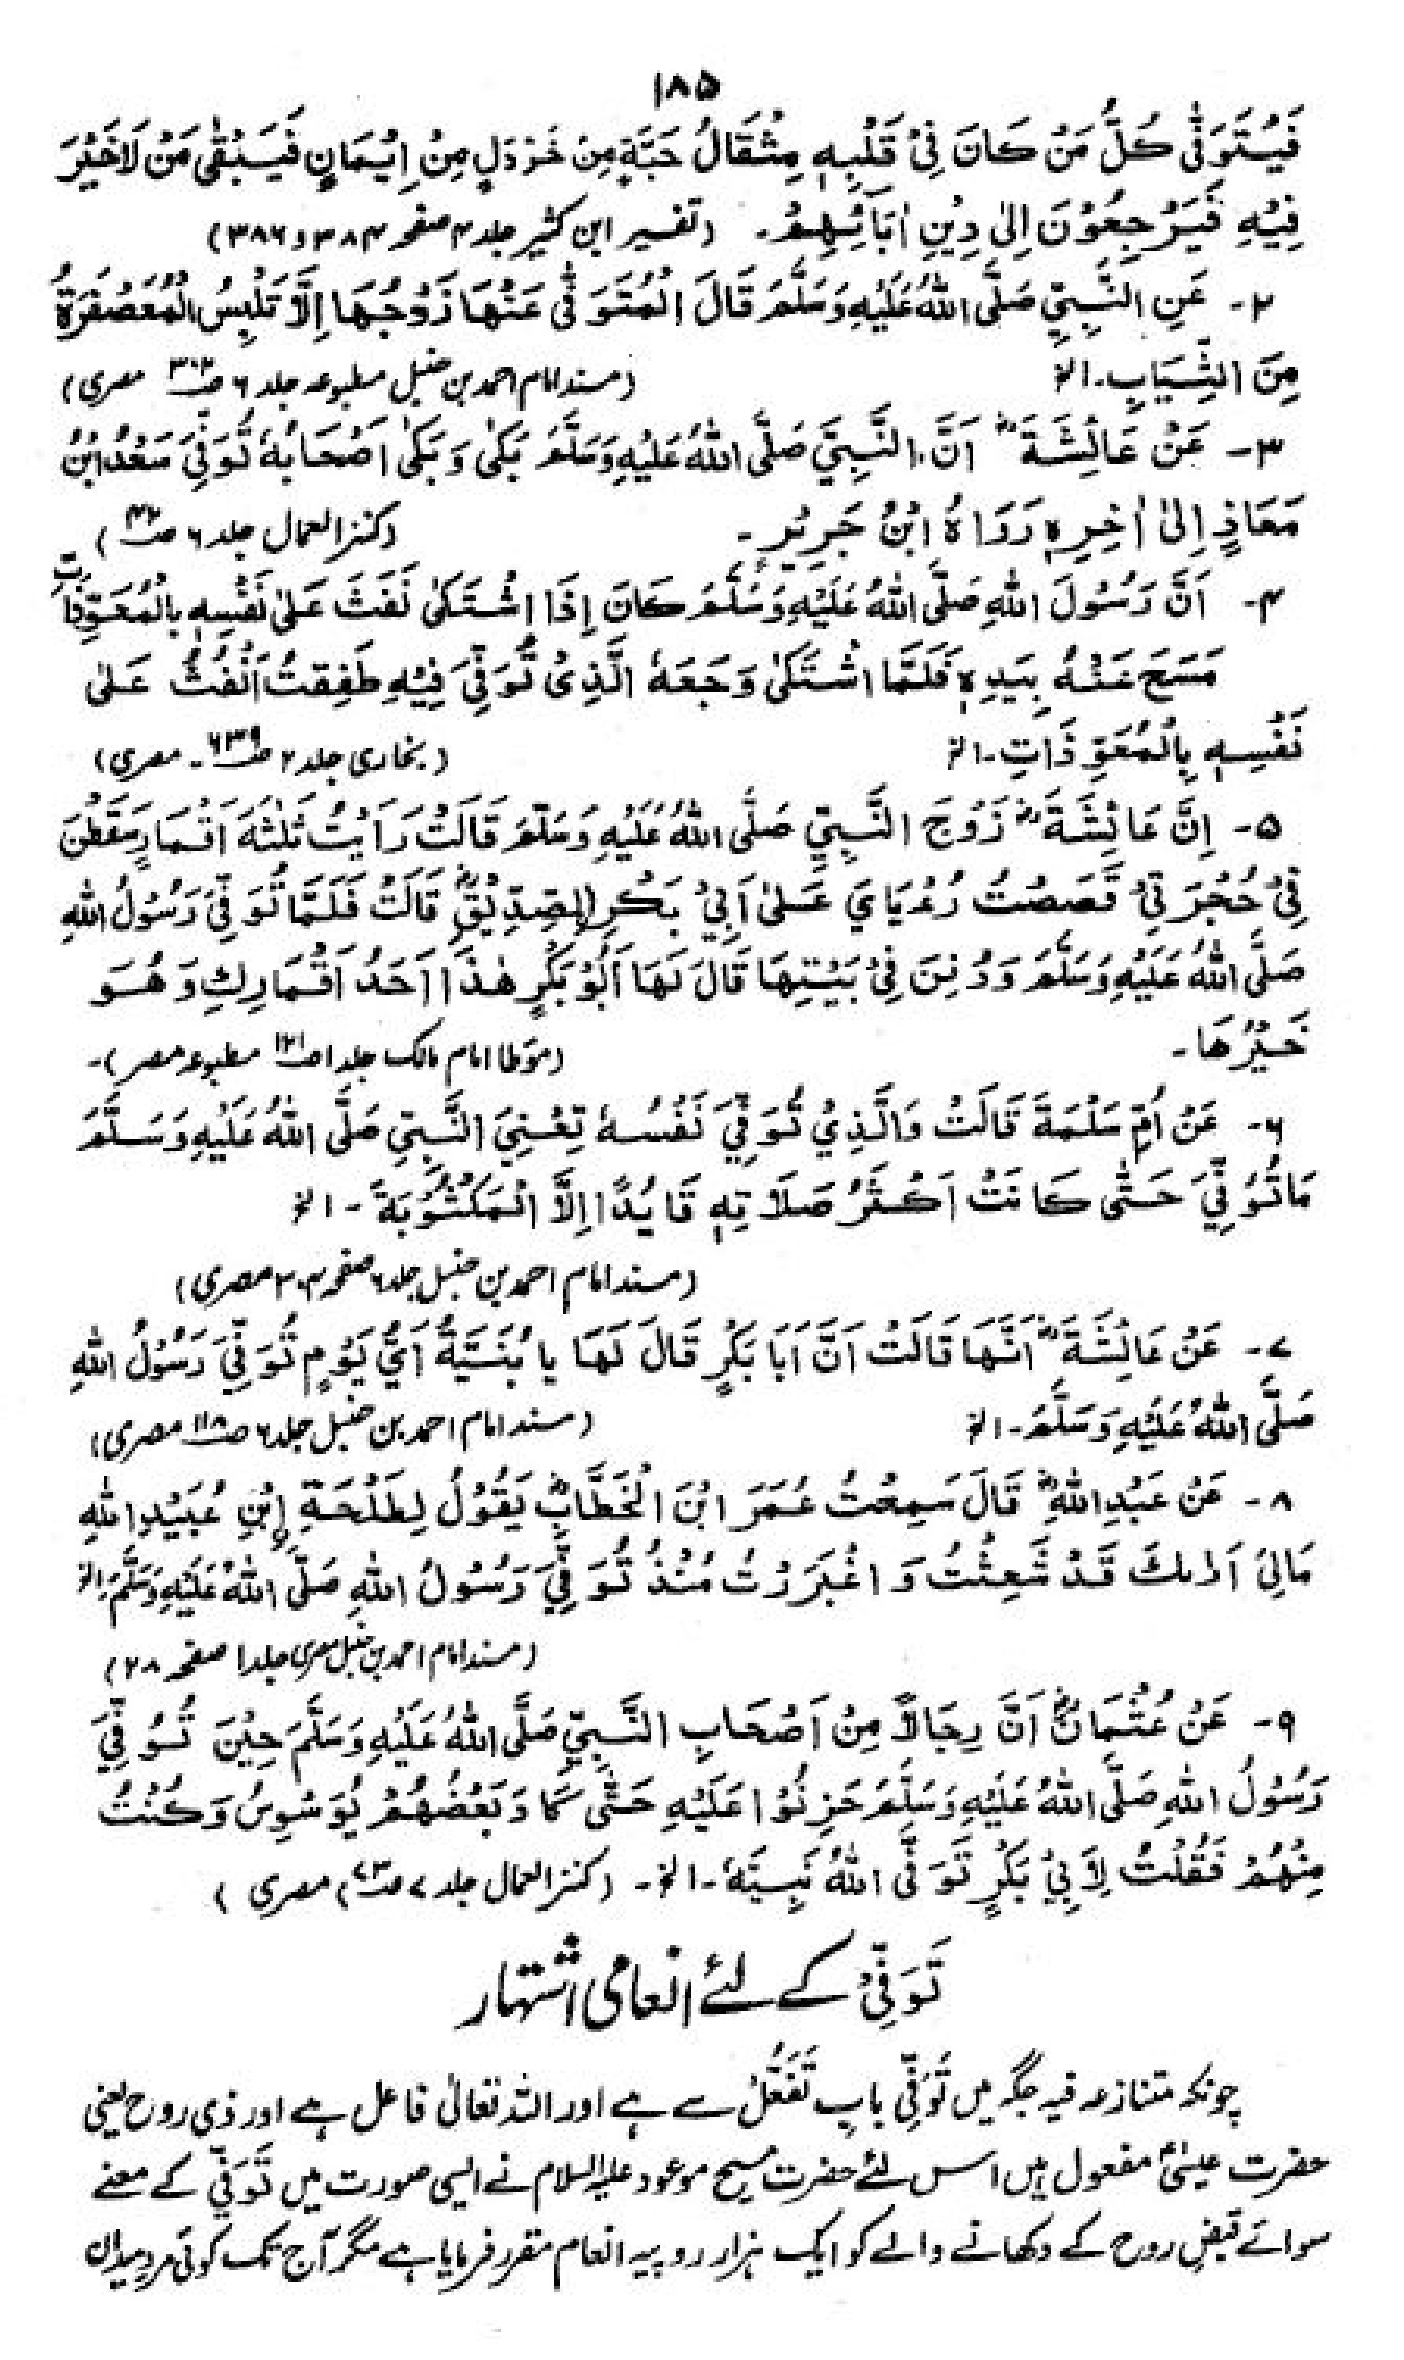 ۱۸۵
فَيُتَوَفّٰى كُلُّ مَنْ كَانَ فِيْ قَلْبِهٖ مِثْقَالُ حَبَّةٍ مِنْ خَرْدَلٍ مِنْ اِيْمَانٍ فَيَبْقٰى مَنْ لَاخَيْرَ
فِيْهِ فَيَرْجِعُوْنَ اِلٰى دِيْنِ اٰبَائِهِمْ۔ (تفسیر ابن کثیر جلد ۴ صفحہ ۳۸۴ و ۳۸۶)
۲- عَنِ النَّبِيِّ صَلَّى اللّٰهُ عَلَيْهِ وَسَلَّمَ قَالَ الْمُتَوَفّٰى عَنْهَا زَوْجُهَا اِلَّا تَلْبِسُ الْمُعَصْفَرَةُ
مِنَ الثِّيَابِ۔ الخ (مسند امام احمد بن حنبل مطبوعہ جلد ۶ صـ۳۰۲ مصری)
۳- عَنْ عَائِشَةَؓ اَنَّ النَّبِيَّ صَلَّى اللّٰهُ عَلَيْهِ وَسَلَّمَ بَكٰى وَبَكٰى اَصْحَابُهٗ تُوُفِّيَ سَعْدُ ابْنُ
مَعَاذٍ اِلٰى اٰخِرِهٖ رَوَاهُ ابْنُ جَرِيْرٍ۔ (کنز العمال جلد ۶ صـ۴۲)
۴- اَنَّ رَسُوْلَ اللّٰهِ صَلَّى اللّٰهُ عَلَيْهِ وَسَلَّمَ كَانَ اِذَا اشْتَكٰى نَفَثَ عَلٰى نَفْسِهٖ بِالْمُعَوِّذَاتِ
مَسَحَ عَنْهُ بِيَدِهٖ فَلَمَّا اشْتَكٰى وَجَعَهٗ الَّذِيْ تُوُفِّيَ فِيْهِ طَفِقْتُ اَنْفُثُ عَلٰى
نَفْسِهٖ بِالْمُعَوِّذَاتِ۔ الخ (بخاری جلد ۲ صـ۶۳۹ - مصری)
۵- اِنَّ عَائِشَةَؓ زَوْجَ النَّبِيِّ صَلَّى اللّٰهُ عَلَيْهِ وَسَلَّمَ قَالَتْ رَاَيْتُ ثَلٰثَةَ اَقْمَارٍ سَقَطْنَ
فِيْ حُجْرَتِيْ فَقَصَصْتُ رُءْيَايَ عَلٰى اَبِيْ بَكْرِ الصِّدِّيْقِؓ قَالَتْ فَلَمَّا تُوُفِّيَ رَسُوْلُ اللّٰهِ
صَلَّى اللّٰهُ عَلَيْهِ وَسَلَّمَ وَدُفِنَ فِيْ بَيْتِهَا قَالَ لَهَا اَبُوْبَكْرٍ هٰذَا اَحَدُ اَقْمَارِكِ وَهُوَ
خَيْرُهَا۔ (مؤطا امام مالک جلد ۱ صـ۱۲۱ مطبوعہ مصر)۔
۶- عَنْ اُمِّ سَلْمَةَ قَالَتْ وَالَّذِيْ تُوُفِّيَ نَفْسُهٗ تَعْنِي النَّبِيِّ صَلَّى اللّٰهُ عَلَيْهِ وَسَلَّمَ
مَا تُوُفِّيَ حَتّٰى كَانَتْ اَكْثَرُ صَلَاتِهٖ قَاعِدًا اِلَّا الْمَكْتُوْبَةَ - الخ
(مسند امام احمد بن حنبل جلد ۶ صفحہ ۳۰۴ مصری)
۷- عَنْ عَائِشَةَؓ اَنَّهَا قَالَتْ اَنَّ اَبَا بَكْرٍ قَالَ لَهَا يَا بُنَيَّةُ اَيُّ يَوْمٍ تُوُفِّيَ رَسُوْلُ اللّٰهِ
صَلَّى اللّٰهُ عَلَيْهِ وَسَلَّمَ۔ الخ (مسند امام احمد بن حنبل جلد ۶ صـ۱۱۸ مصری)
۸- عَنْ عَبْدِ اللّٰهِؓ قَالَ سَمِعْتُ عُمَرَ ابْنَ الْخَطَّابِؓ يَقُوْلُ لِطَلْحَةِ ابْنِ عُبَيْدِ اللّٰهِ
مَالِيْ اَرٰىكَ قَدْ شَعِثْتَ وَ اغْبَرَرْتَ مُنْذُ تُوُفِّيَ رَسُوْلُ اللّٰهِ صَلَّى اللّٰهُ عَلَيْهِ وَسَلَّمَ الخ
(مسند امام احمد بن حنبل مصری جلد ۱ صفحہ ۲۸)
۹- عَنْ عُثْمَانَؓ اَنَّ رِجَالًا مِنْ اَصْحَابِ النَّبِيِّ صَلَّى اللّٰهُ عَلَيْهِ وَسَلَّمَ حِيْنَ تُوُفِّيَ
رَسُوْلُ اللّٰهِ صَلَّى اللّٰهُ عَلَيْهِ وَسَلَّمَ حَزِنُوْا عَلَيْهِ حَتّٰى كَادَ بَعْضُهُمْ يُوَسْوِسُ وَكُنْتُ
مِنْهُمْ فَقُلْتُ لِاَبِيْ بَكْرٍ تَوَفَّى اللّٰهُ نَبِيَّهٗ۔ الخ۔ (کنز العمال جلد ۷ صـ۷۳ مصری)
تَوَفِّيْ کے لئے انعامی اشتہار
چونکہ متنازعہ فیہ جگہ میں تَوَفِّی بابِ تَفَعُّلْ سے ہے اور اللہ تعالیٰ فاعل ہے اور ذی روح یعنی
حضرت عیسیٰؑ مفعول ہیں اس لئے حضرت مسیح موعود علیہ السلام نے ایسی صورت میں تَوَفِّی کے معنے
سوائے قبضِ روح کے دکھانے والے کو ایک ہزار روپیہ انعام مقرر فرمایا ہے مگر آج تک کوئی مردِ میدان